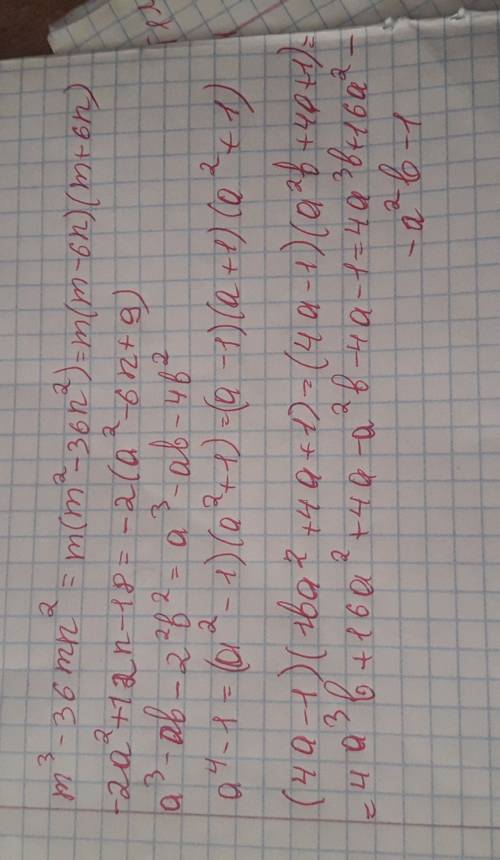 m³ - 36mn² = m(m² - 36n²) = m(m - 6n)(m + 6n)
-2a² + 12n - 18 = -2(a² - 6n + 9)
a³ - ab - 2²b² = a³ - ab - 4b²
a⁴ - 1 = (a² - 1)(a² + 1) = (a - 1)(a + 1)(a² + 1)
(4a - 1)(a² + 4a + 1) = (4a - 1)(a²b + 4a + 1) =
= 4a³b + 16a² + 4a - a²b - 4a - 1 = 4a³b + 16a² -
- a²b - 1